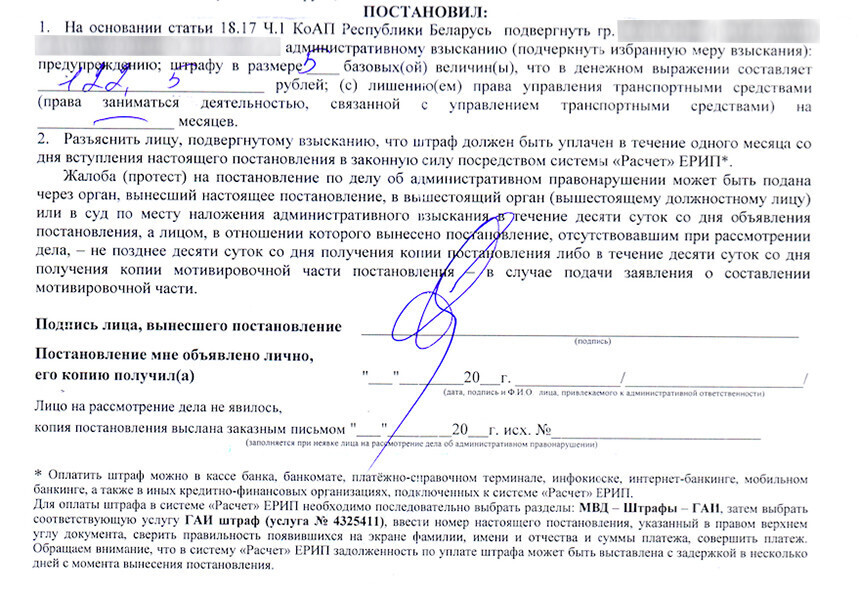 ПОСТАНОВИЛ:
1. На основании статьи 18.17 Ч.1 КоАП Республики Беларусь подвергнуть гр.
административному взысканию (подчеркнуть избранную меру взыскания):
предупреждению; штрафу в размере 5 базовых(ой) величин(ы), что в денежном выражении составляет
122,5 рублей; (с) лишению(ем) права управления транспортными средствами
(права заниматься деятельностью, связанной с управлением транспортными средствами) на
месяцев.
2. Разъяснить лицу, подвергнутому взысканию, что штраф должен быть уплачен в течение одного месяца со
дня вступления настоящего постановления в законную силу посредством системы «Расчет» ЕРИП*.
Жалоба (протест) на постановление по делу об административном правонарушении может быть подана
через орган, вынесший настоящее постановление, в вышестоящий орган (вышестоящему должностному лицу)
или в суд по месту наложения административного взыскания в течение десяти суток со дня объявления
постановления, а лицом, в отношении которого вынесено постановление, отсутствовавшим при рассмотрении
дела, – не позднее десяти суток со дня получения копии постановления либо в течение десяти суток со дня
получения копии мотивировочной части постановления – в случае подачи заявления о составлении
мотивировочной части.
Подпись лица, вынесшего постановление
(подпись)
Постановление мне объявлено лично,
его копию получил(а) "___"______20___г. ____________/____________/
(дата, подпись и Ф.И.О. лица, привлекаемого к административной ответственности)
Лицо на рассмотрение дела не явилось,
копия постановления выслана заказным письмом "___"______20___г. исх. №____________
(заполняется при неявке лица на рассмотрение дела об административном правонарушении)
* Оплатить штраф можно в кассе банка, банкомате, платёжно-справочном терминале, инфокиоске, интернет-банкинге, мобильном
банкинге, а также в иных кредитно-финансовых организациях, подключенных к системе «Расчет» ЕРИП.
Для оплаты штрафа в системе «Расчет» ЕРИП необходимо последовательно выбрать разделы: МВД – Штрафы – ГАИ, затем выбрать
соответствующую услугу ГАИ штраф (услуга № 4325411), ввести номер настоящего постановления, указанный в правом верхнем
углу документа, сверить правильность появившихся на экране фамилии, имени и отчества и суммы платежа, совершить платеж.
Обращаем внимание, что в системе «Расчет» ЕРИП задолженность по уплате штрафа может быть выставлена с задержкой в несколько
дней с момента вынесения постановления.